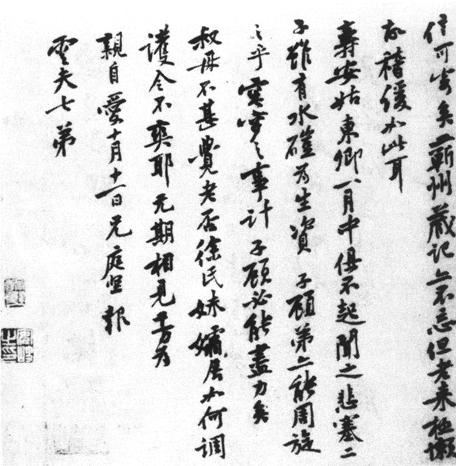 蘄州藏記亦不忘但老來極懶
故稽緩如此耳
壽安姑東卿一月中俱不起聞之悲塞二
子雖有水磑為生資子顧弟亦能周旋
之乎窀穸之事計子顧必能盡力矣
叔母不甚覺老否徐氏妹孀居如何調
護令不爽耶元期相見千萬為
親自愛十月十一日兄庭堅報
雲夫七弟